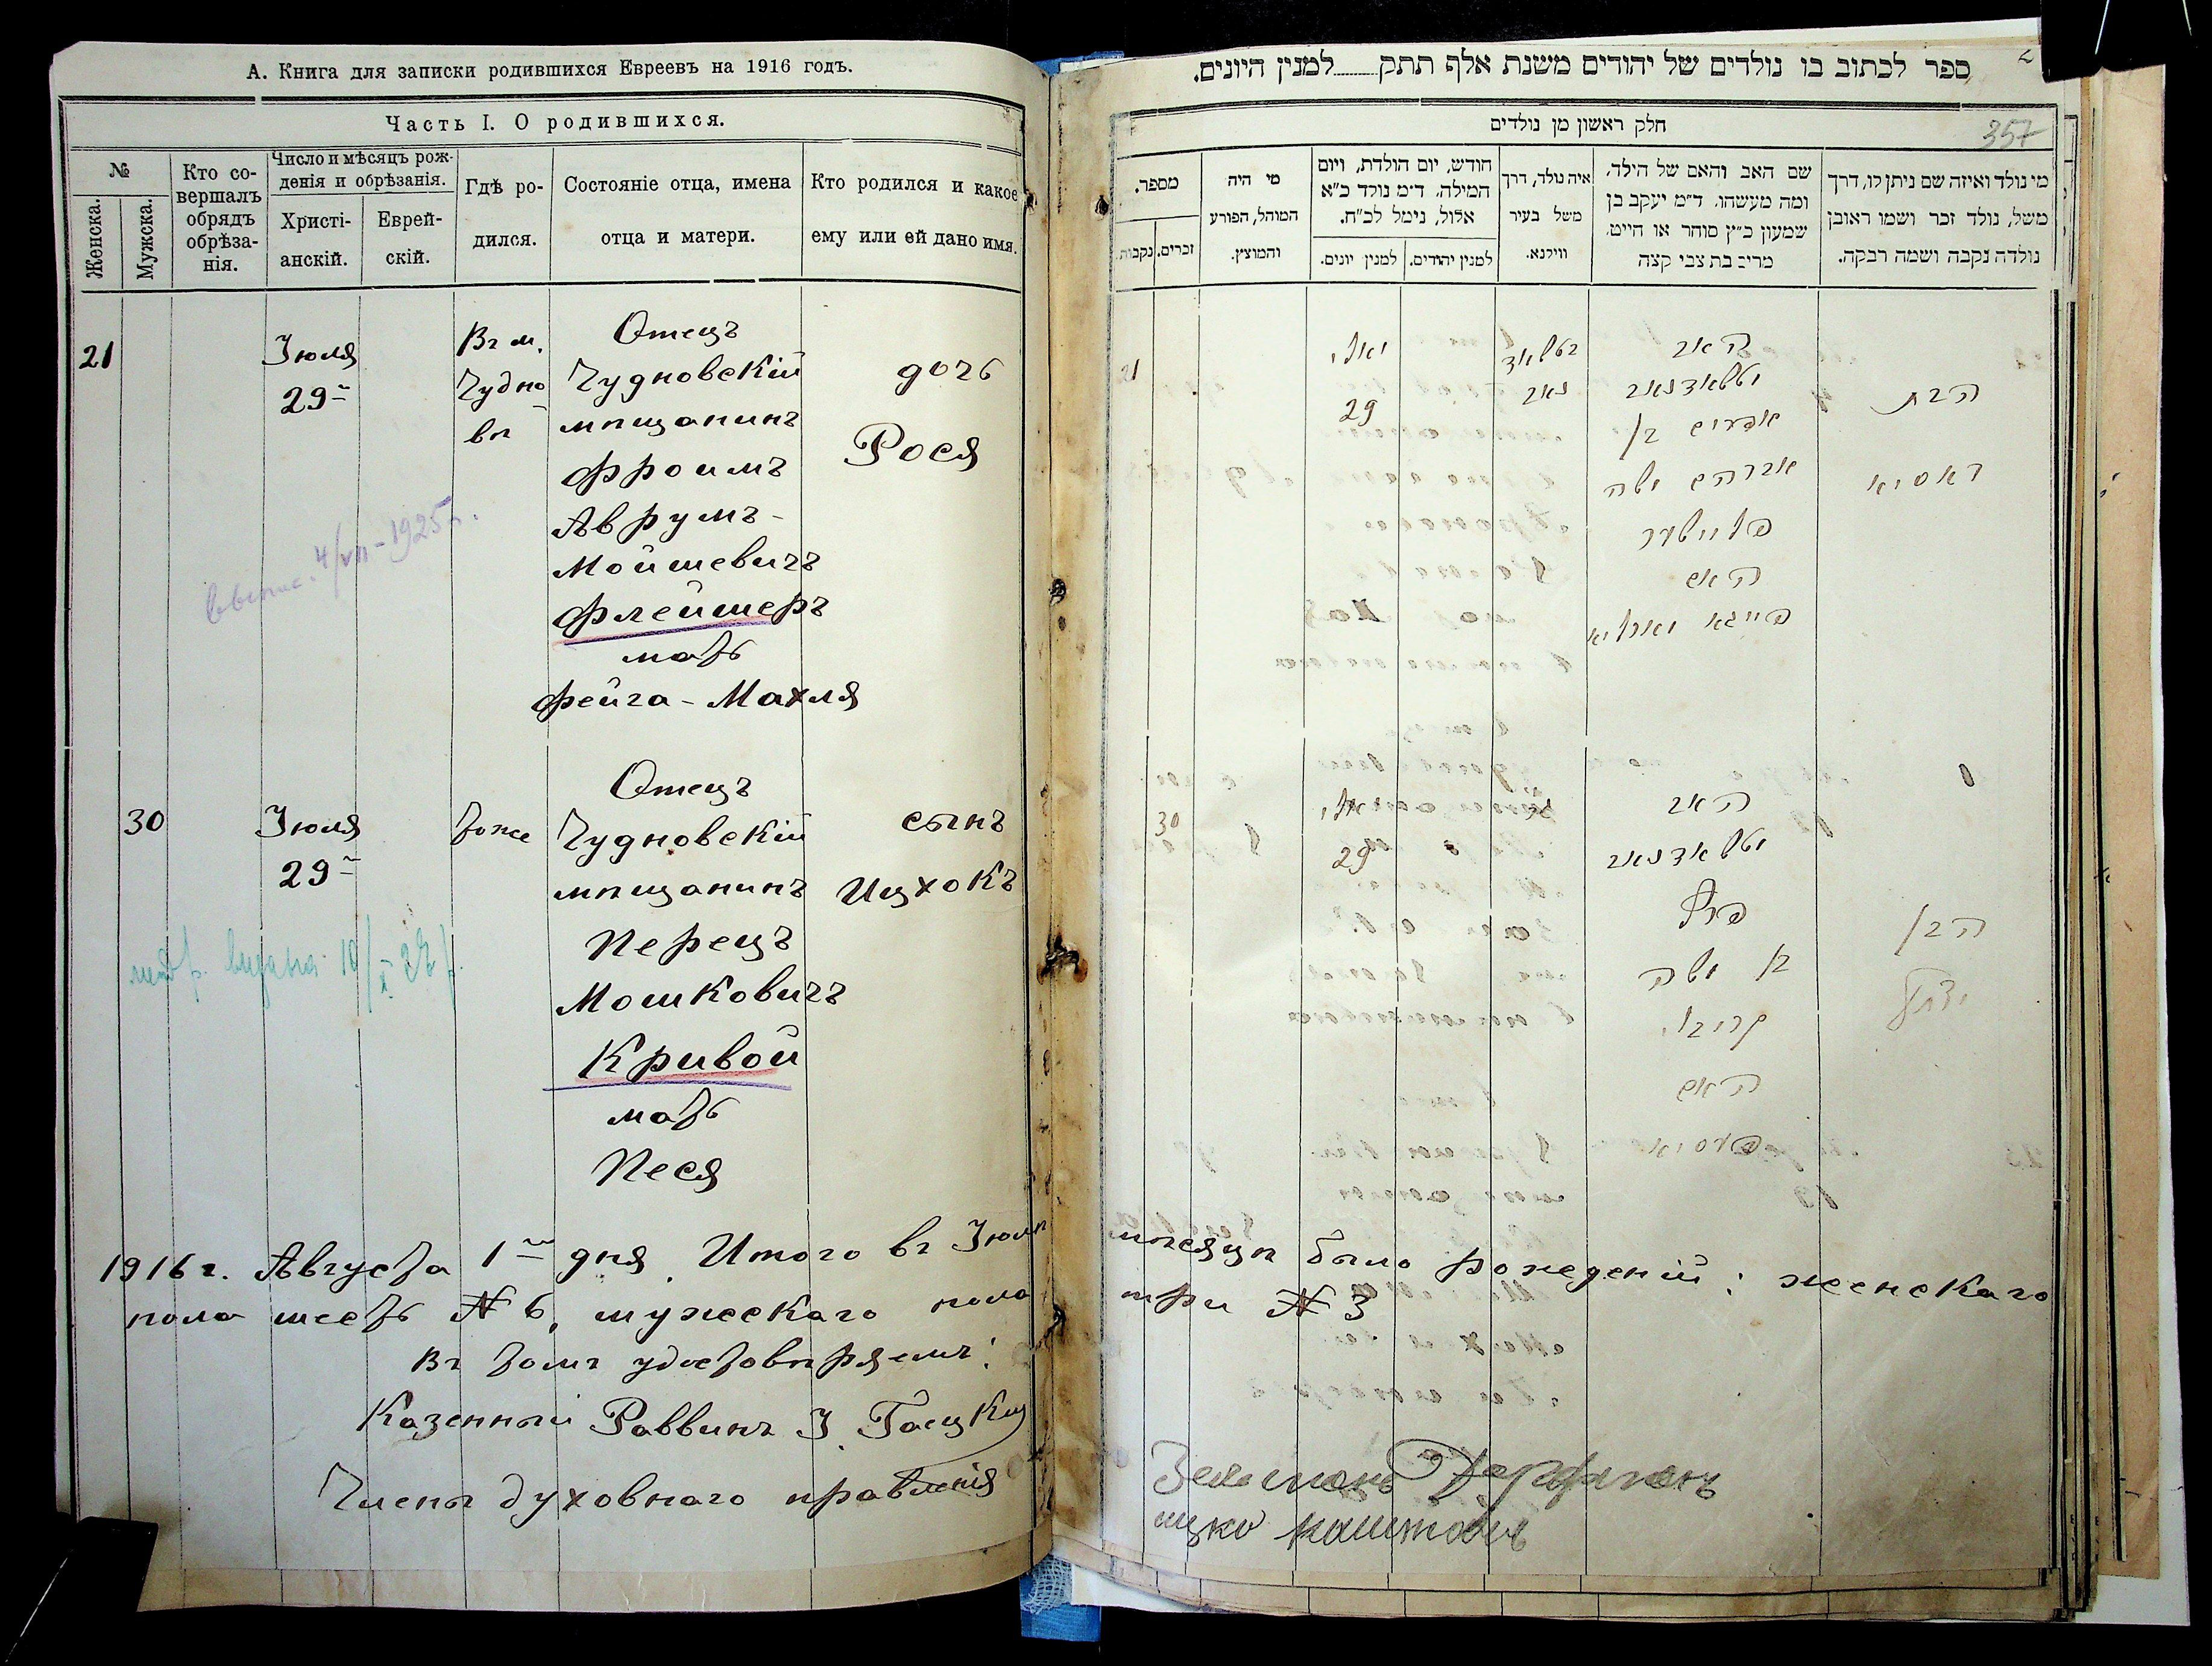 А. Книга для записки родившихся Евреевъ на 1916 годъ.
Часть I. О родившихся.
№
Женска.
Мужска.
Кто со-
вершалъ
обрядъ
обрѣза-
нія.
Число и мѣсяцъ рож-
денія и обрѣзанія.
Христі-
анскій.
Еврей-
скій.
Гдѣ ро-
дился.
Состояніе отца, имена
отца и матери.
Кто родился и какое
ему или ей дано имя.
21
Іюля
29
Въ м.
Чудно
вѣ
Отецъ
Чудновскій
мѣщанинъ
Фроимъ
Аврумъ-
Мойшевичъ
Флейшеръ
мать
Фейга-Махля
дочь
Рося
выпис. 4/VII-1925 г.
30
Іюля
29
тоже
Отецъ
Чудновскій
мѣщанинъ
Перецъ
Мошковичъ
Кривой
мать
Песя
сынъ
Ицхокъ
1916 г. Августа 1 дня. Итого въ Іюлѣ
мѣсяцѣ было рожденій: женскаго
пола шесть № 6, мужескаго пола
три № 3
Въ томъ удостовѣряемъ:
Казенный Раввинъ І.
Члены духовнаго правленія
ספר לכתוב בו נולדים של יהודים משנת אלף תתק למנין היונים.
357
חלק ראשון מן נולדים
מי נולד ואיזה שם ניתן לו, דרך
משל, נולד זכר ושמו ראובן
נולדה נקבה ושמה רבקה.
שם האב והאם של הילד,
ומה מעשהו. ד״מ יעקב בן
שמעון כ״ץ סוחר או חייט.
מרים בת צבי קצה
איה נולד, דרך
משל בעיר
ווילנא.
חודש, יום הולדת, ויום
המילה. ד״מ נולד כ״א
אלול, נימל לכ״ח.
למנין יהודים.
למנין יונים.
מי היה
המוהל, הפורע
והמוצץ.
מספר.
זכרים.
נקבות.
21
יאלי
29
האב
אפרים בן
אברהם משה
פליישער
האם
הבת
ראסיא
30
29
האב
פרץ
בן משה
קריבוי
האם
פעסיא
הבן
יצחק